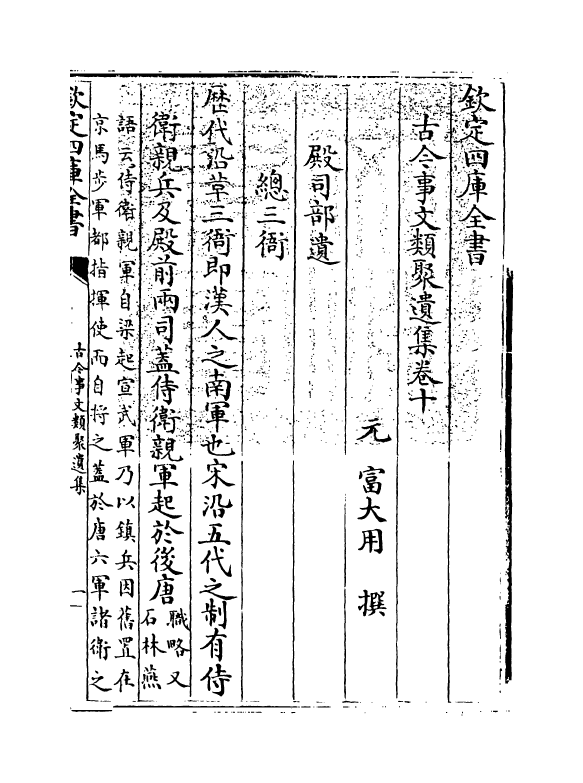 欽定四庫全書
古今事文類聚遺集卷十
元 富大用 撰
殿司部遺
總三衙
歴代沿革三衙即漢人之南軍也宋沿五代之制有侍
衛親兵及殿前兩司蓋侍衛親軍起於後唐職略又
石林燕
語云侍衛親軍自梁起宣武軍乃以鎮兵因舊置在
京馬步軍都指揮使而自將之蓋於唐六軍諸衛之
欽定四庫全書
古今事文類聚遺集
一